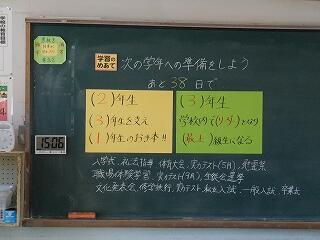 学習の
めあて
次の学年への準備をしよう
あと38日で
(2)年生
(3)年生を支え
(1)年生のお手本!!
(3)年生
学校内で(リーダー)となり
(最上)級生になる
1506
入学式、礼法指導、体育大会、実力テスト(5月)、慰霊祭
職場体験学習、実力テスト(9月)、生徒会選挙
文化発表会、修学旅行、実力テスト、私立入試、一般入試、卒業式